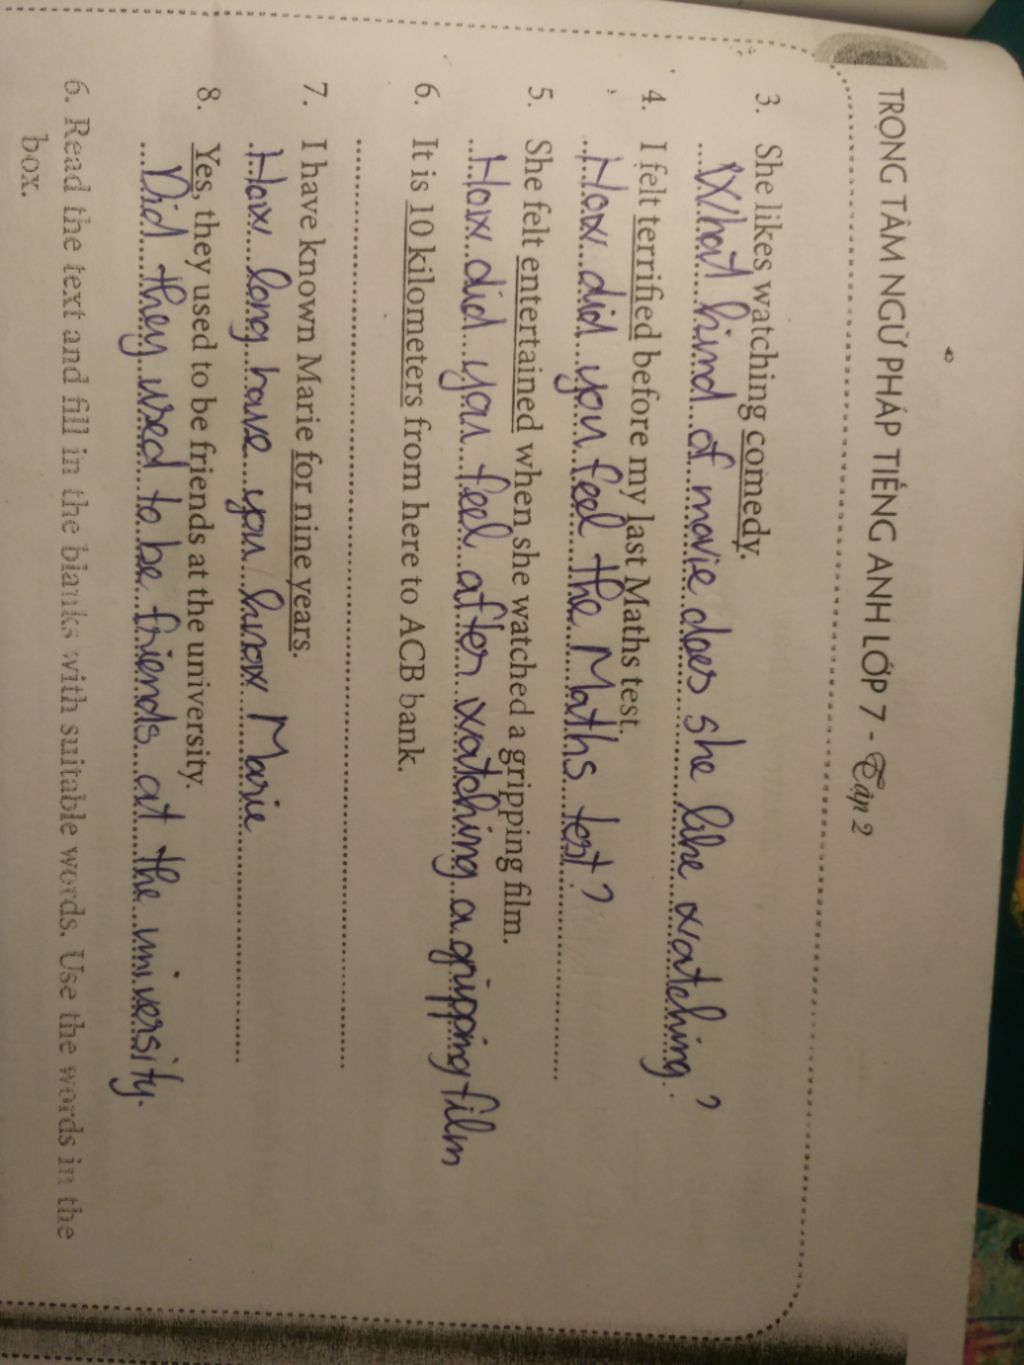 TRỌNG TÂM NGỮ PHÁP TIẾNG ANH LỚP 7 - Tập 2
3. She likes watching comedy.
What kind of movie does she like watching?
4. I felt terrified before my last Maths test.
How did you feel the Maths test?
5. She felt entertained when she watched a gripping film.
How did you feel after watching a gripping film
6. It is 10 kilometers from here to ACB bank.
7. I have known Marie for nine years.
How long have you know Marie
8. Yes, they used to be friends at the university.
Did they used to be friends at the university.
6. Read the text and fill in the blanks with suitable words. Use the words in the
box.